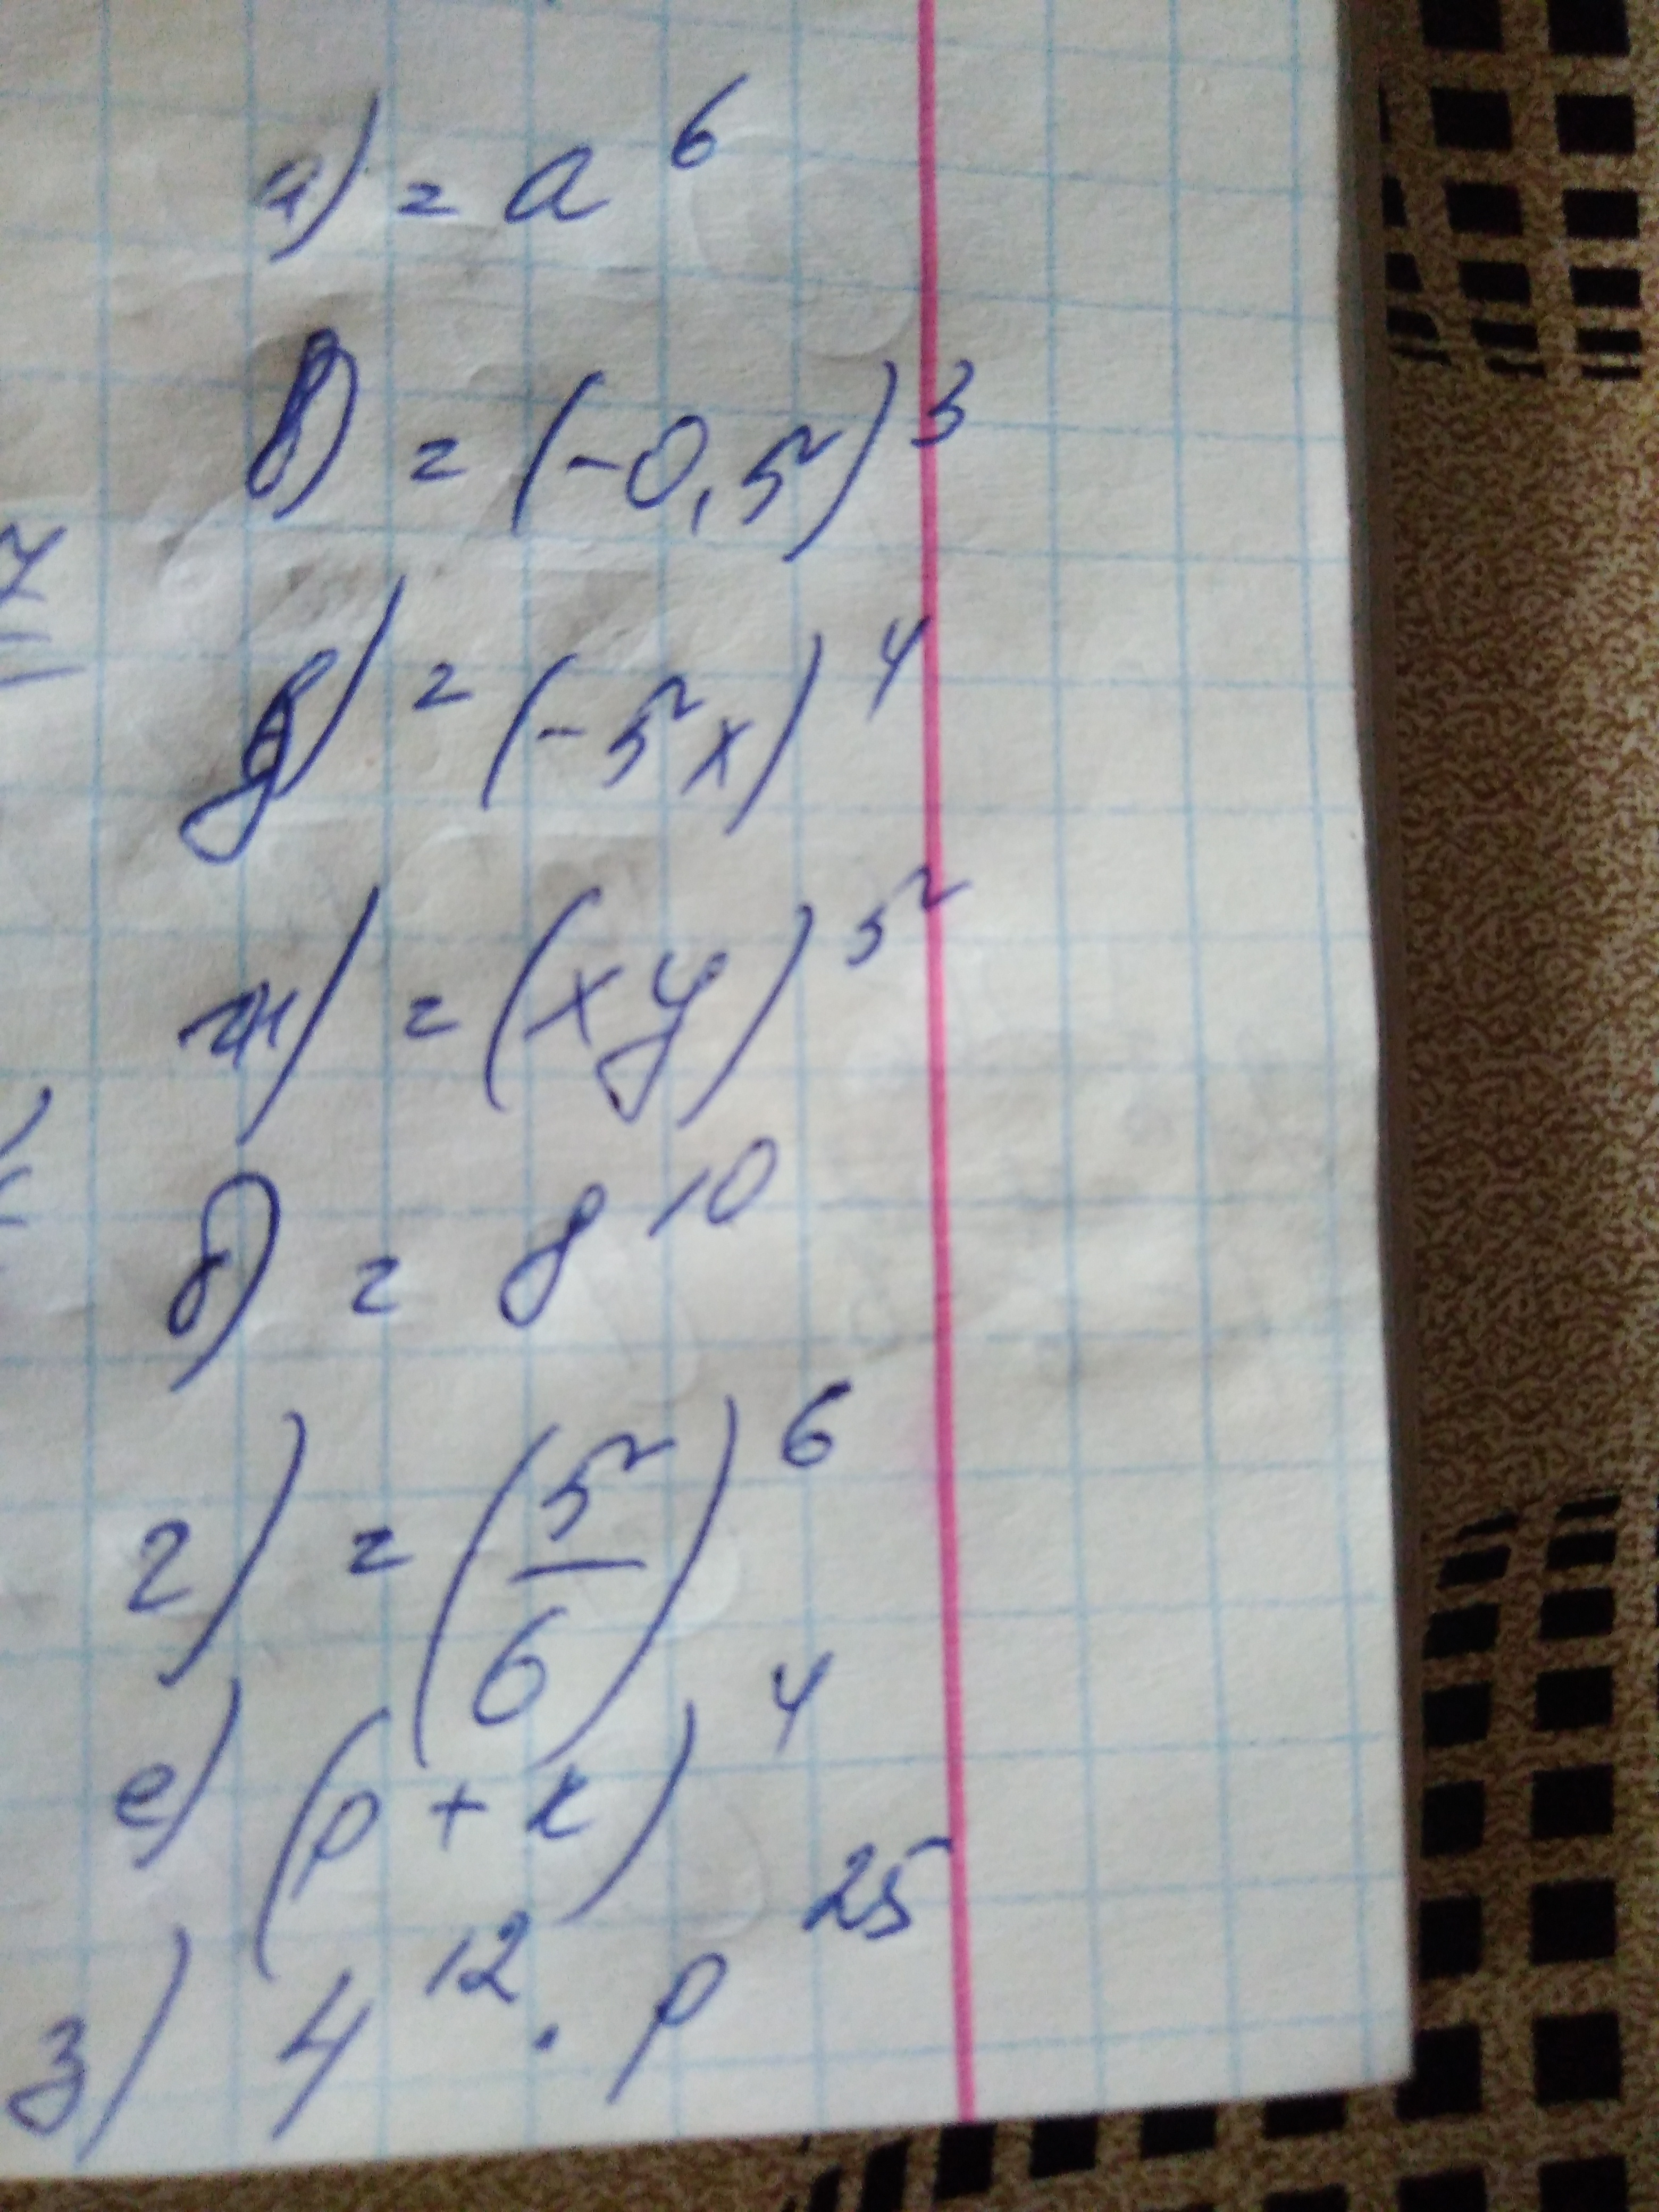 а) = a⁶
в) = (-0,5)³
д) = (-5x)⁴
ж) = (xy)⁵
б) = 8¹⁰
г) = (5/6)⁶
е) (p + k)⁴
з) 4¹² · p²⁵
7